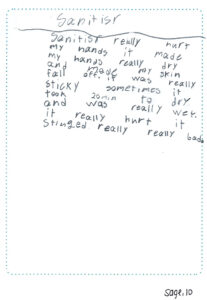 Sanitisr
Sanitisr really hurt
my hands it made
my hands really dry
and made my skin
fall off. it was really
sticky sometimes it
took 20min to dry
and was really wet.
it really hurt it
stinged really really bade
sage, 10